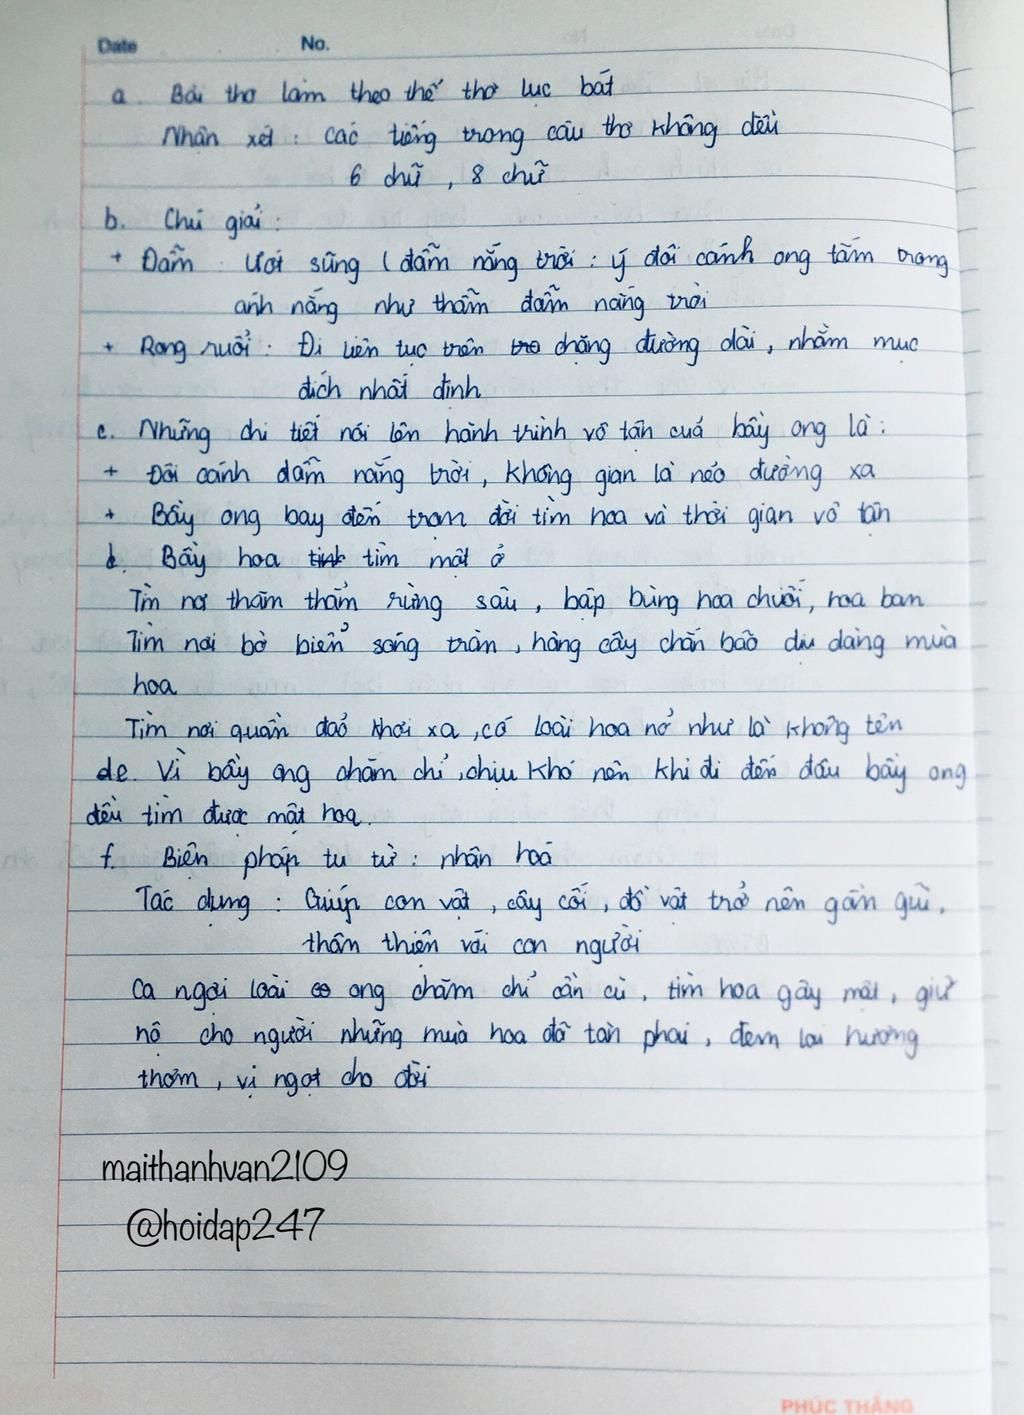 Date No.
a. Bài thơ làm theo thế thơ lục bát
Nhận xét : các tiếng trong câu thơ không đều
6 chữ , 8 chữ
b. Chú giải :
+ Đẫm : Ướt sũng ( đẫm nắng trời : ý đôi cánh ong tắm trong
ánh nắng như thấm đẫm nắng trời
+ Rong ruổi : Đi liên tục trên tro chặng đường dài , nhằm mục
đích nhất định
c. Những chi tiết nói lên hành trình vô tận của bầy ong là :
+ Đôi cánh đẫm nắng trời , không gian là nẻo đường xa
+ Bầy ong bay đến trọn đời tìm hoa và thời gian vô tận
d. Bầy hoa tinh tìm mật ở
Tìm nơi thăm thẳm rừng sâu , bập bùng hoa chuối , hoa ban
Tìm nơi bờ biển sóng tràn , hàng cây chắn bão dịu dàng mùa
hoa
Tìm nơi quần đảo khơi xa , có loài hoa nở như là không tên
de. Vì bầy ong chăm chỉ , chịu khó nên khi đi đến đâu bầy ong
đều tìm được mật hoa.
f. Biện pháp tu từ : nhân hoá
Tác dụng : Giúp con vật , cây cối , đồ vật trở nên gần gũi ,
thân thiện với con người
Ca ngợi loài ong chăm chỉ cần cù , tìm hoa gây mật , giữ
hộ cho người những mùa hoa đã tàn phai , đem lại hương
thơm , vị ngọt cho đời
maithanhvan2109
@hoidap247
PHÚC THẮNG